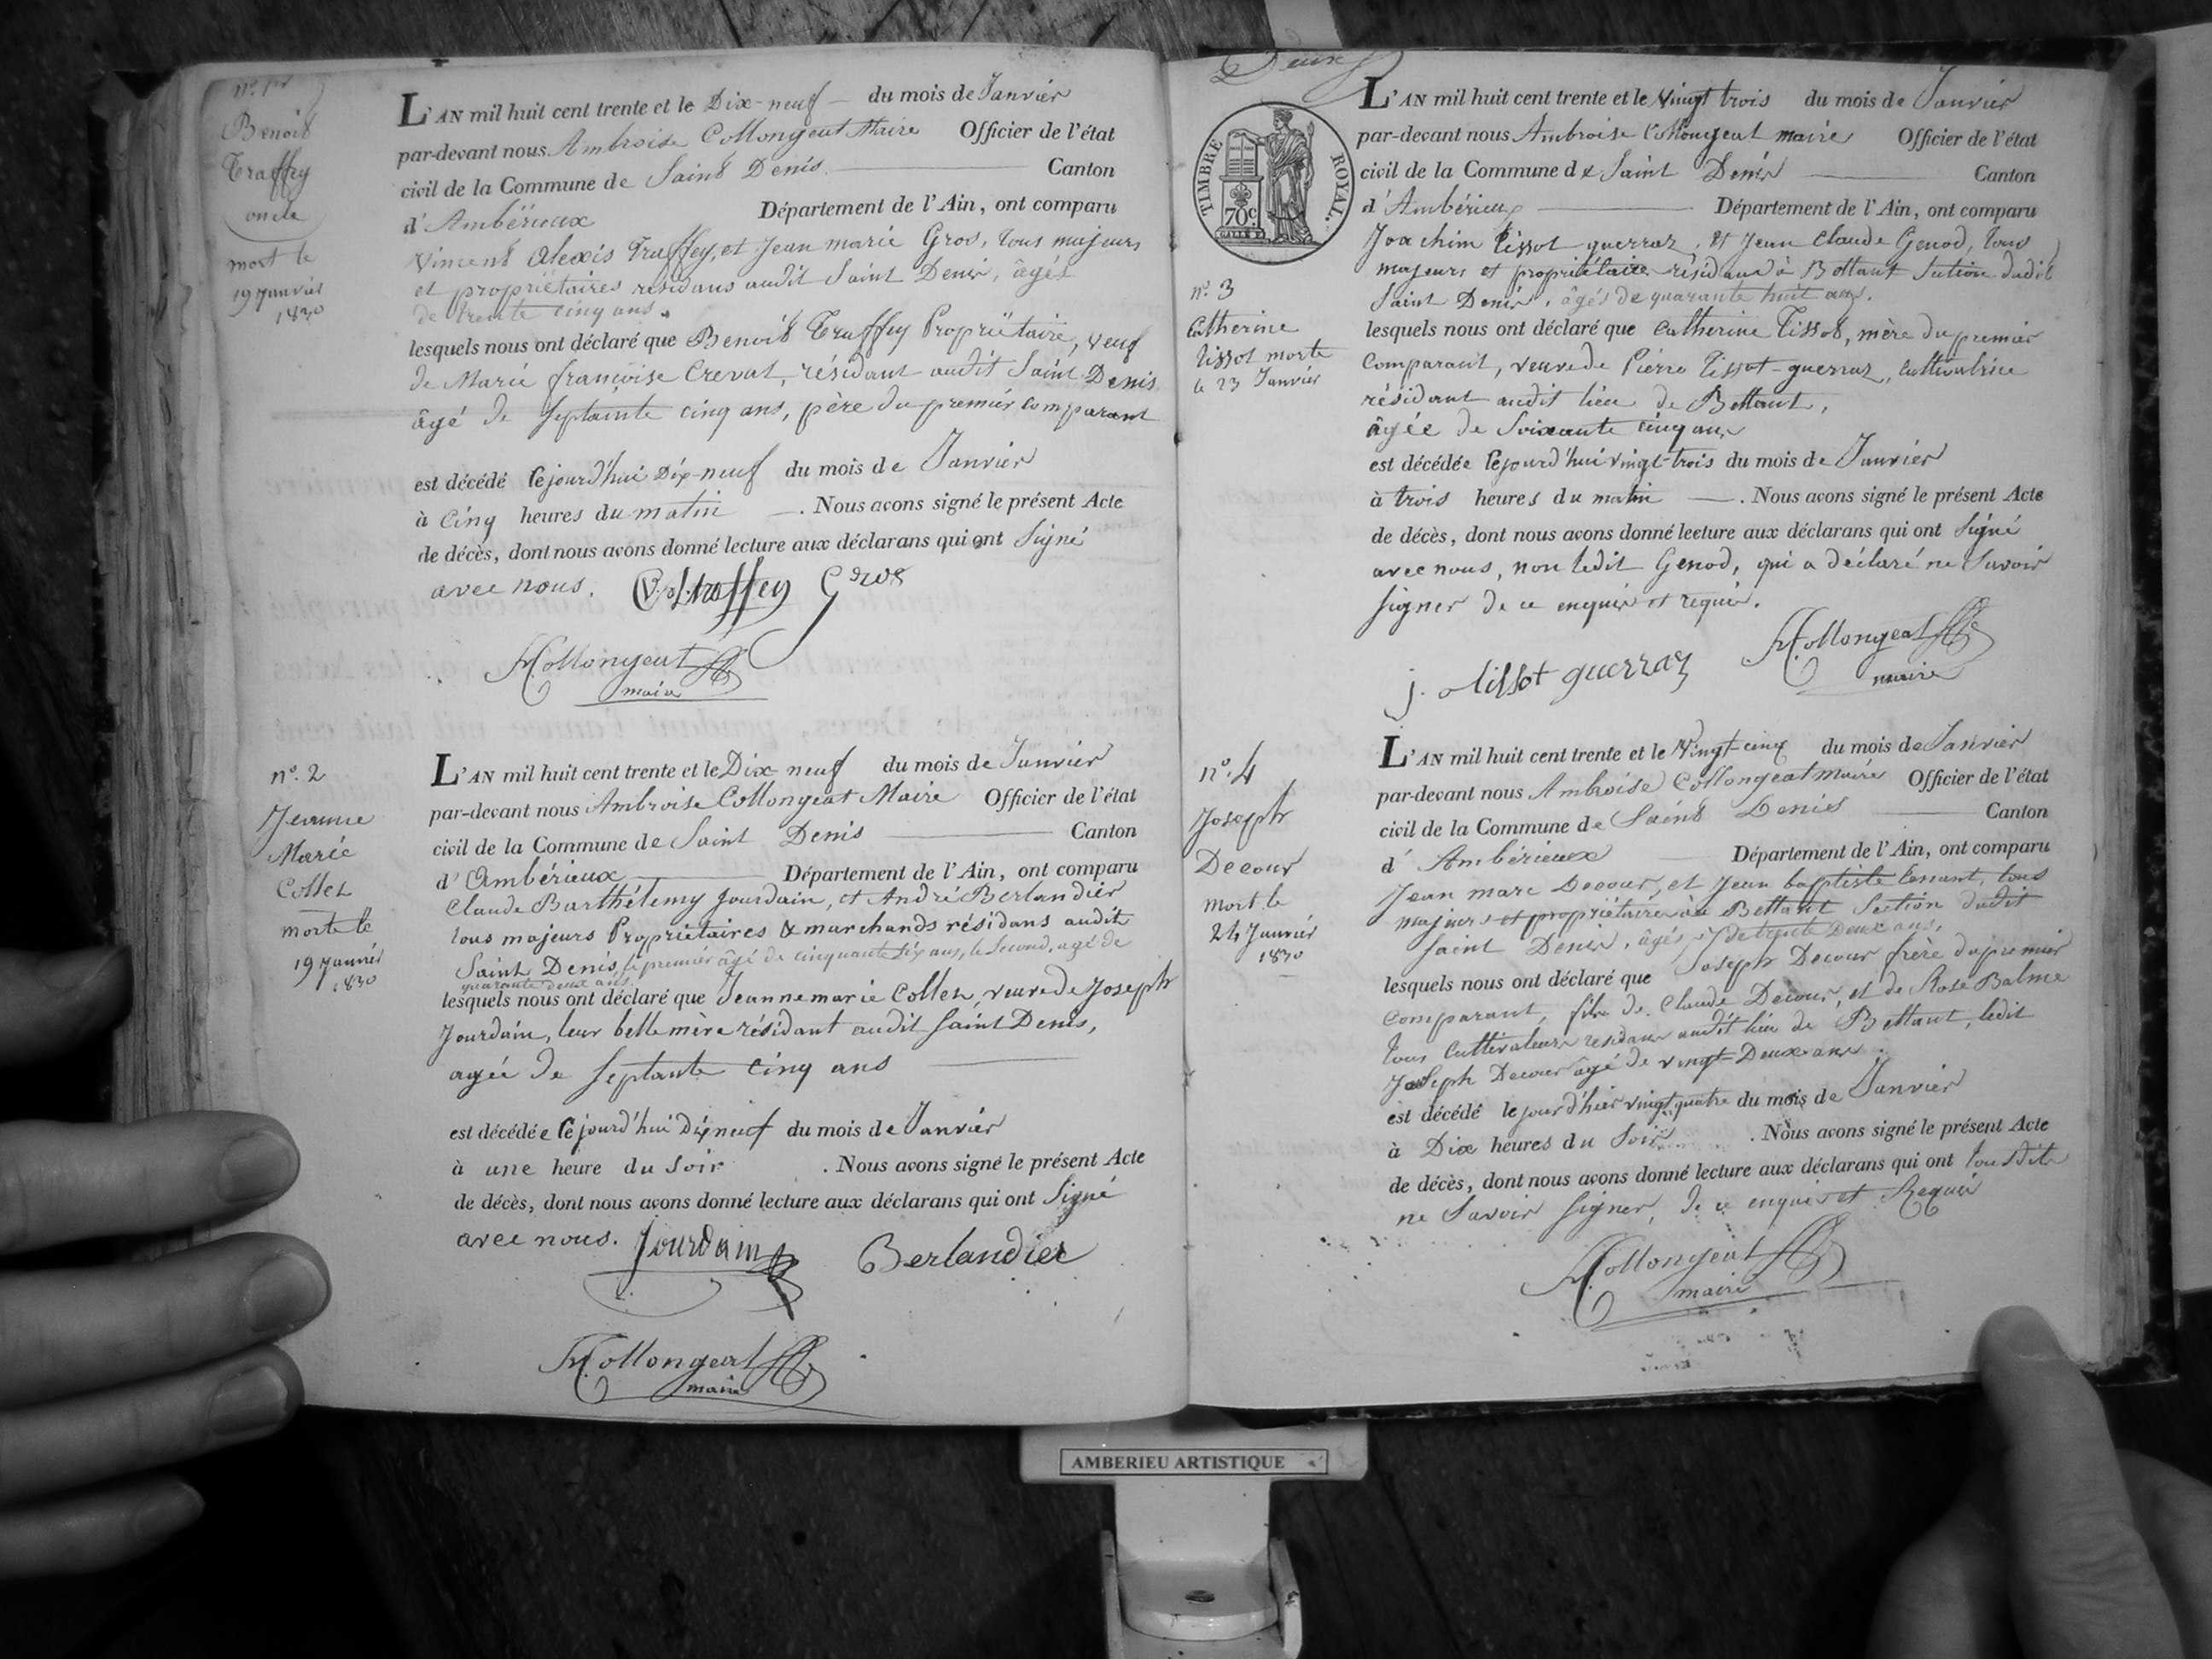 n.º 1er
Benoit
Traffey
oncle
mort le
19 Janvier
1830
L'AN mil huit cent trente et le Dix-neuf du mois de Janvier
par-devant nous Ambroise Collongeat Maire Officier de l'état
civil de la Commune de Saint Denis Canton
d'Ambérieux Département de l'Ain, ont comparu
Vincent Alexis Traffey, et Jean marie Gros, tous majeurs
et propriëtaires residans audit Saint Denis, âgés
de trente cinq ans.
lesquels nous ont déclaré que Benoit Traffey Propriëtaire, veuf
de Marie françoise Crevat, résidant audit Saint Denis
âgé de septante cinq ans, père du premier comparant
est décédé cejourd'hui Dix-neuf du mois de Janvier
à cinq heures du matin. Nous avons signé le présent Acte
de décès, dont nous avons donné lecture aux déclarans qui ont signé
avec nous. traffey Gros
Collongeat
maire
n.º 2
Jeanne
Marie
Collet
morte le
19 Janvier
1830
L'AN mil huit cent trente et le Dix neuf du mois de Janvier
par-devant nous Ambroise Collongeat Maire Officier de l'état
civil de la Commune de Saint Denis Canton
d'Ambérieux Département de l'Ain, ont comparu
Claude Barthélemy Jourdain, et André Berlandier
tous majeurs Propriétaires & marchands résidans audit
Saint Denis, le premier âgé de cinquante six ans, le second, agé de
quarante deux ans,
lesquels nous ont déclaré que Jeanne marie Collet, veuve de Joseph
Jourdain, leur belle mère résidant audit Saint Denis,
agée de septante cinq ans
est décédée cejourd'hui Dix neuf du mois de Janvier
à une heure du soir. Nous avons signé le présent Acte
de décès, dont nous avons donné lecture aux déclarans qui ont signé
avec nous. Jourdain Berlandier
Collongeat
maire
Deux
TIMBRE ROYAL.
70c
n.º 3
Catherine
Tissot morte
le 23 Janvier
L'AN mil huit cent trente et le Vingt trois du mois de Janvier
par-devant nous Ambroise Collongeat maire Officier de l'état
civil de la Commune de Saint Denis Canton
d'Ambérieux Département de l'Ain, ont comparu
Joachim Tissot guerraz, et Jean Claude Genod, tous
majeurs et propriétaires résidans à Bettant Section dudit
Saint Denis, âgés de quarante huit ans.
lesquels nous ont déclaré que Catherine Tissot, mère du premier
comparant, veuve de Pierre Tissot-guerraz, cultivatrice
résidant audit lieu de Bettant,
âgée de soixante cinq ans
est décédée cejourd'hui vingt-trois du mois de Janvier
à trois heures du matin. Nous avons signé le présent Acte
de décès, dont nous avons donné lecture aux déclarans qui ont signé
avec nous, non ledit Genod, qui a déclaré ne savoir
signer de ce enquis et requis.
j. tissot guerraz Collongeat
maire
n.º 4
Joseph
Decour
mort le
24 Janvier
1830
L'AN mil huit cent trente et le Vingt-cinq du mois de Janvier
par-devant nous Ambroise Collongeat Maire Officier de l'état
civil de la Commune de Saint Denis Canton
d'Ambérieux Département de l'Ain, ont comparu
Jean marc Decour, et Jean baptiste tous
majeurs et propriétaires à Bettant Section dudit
Saint Denis, âgés de trente Deux ans,
lesquels nous ont déclaré que Joseph Decour frère du premier
comparant, fils de Claude Decour, et de Rose Balme
tous cultivateurs residans audit lieu de Bettant, ledit
Joseph Decour âgé de vingt-Deux ans.
est décédé le jour d'hier vingt quatre du mois de Janvier
à Dix heures du soir. Nous avons signé le présent Acte
de décès, dont nous avons donné lecture aux déclarans qui ont
ne savoir signer, de ce enquis et Requis
Collongeat
maire
AMBERIEU ARTISTIQUE